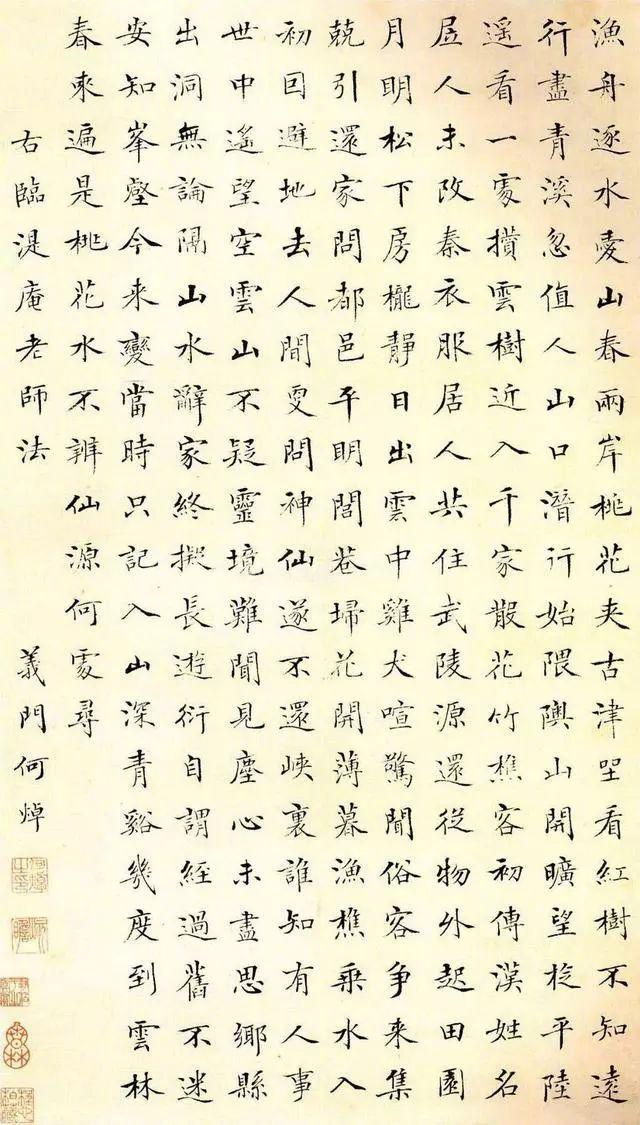 漁舟逐水愛山春兩岸桃花夾古津坐看紅樹不知遠
行盡青溪忽值人山口潛行始隈隩山開曠望旋平陸
遥看一處攢雲樹近入千家散花竹樵客初傳漢姓名
居人未改秦衣服居人共住武陵源還從物外起田園
月明松下房櫳靜日出雲中雞犬喧驚聞俗客爭來集
競引還家問都邑平明閭巷埽花開薄暮漁樵乘水入
初因避地去人間更問神仙遂不還峽裏誰知有人事
世中遙望空雲山不疑靈境難聞見塵心未盡思鄉縣
出洞無論隔山水辭家終擬長遊衍自謂經過舊不迷
安知峯壑今来變當時只記入山深青谿幾度到雲林
春來遍是桃花水不辨仙源何處尋
右臨湜庵老師法 義門何焯